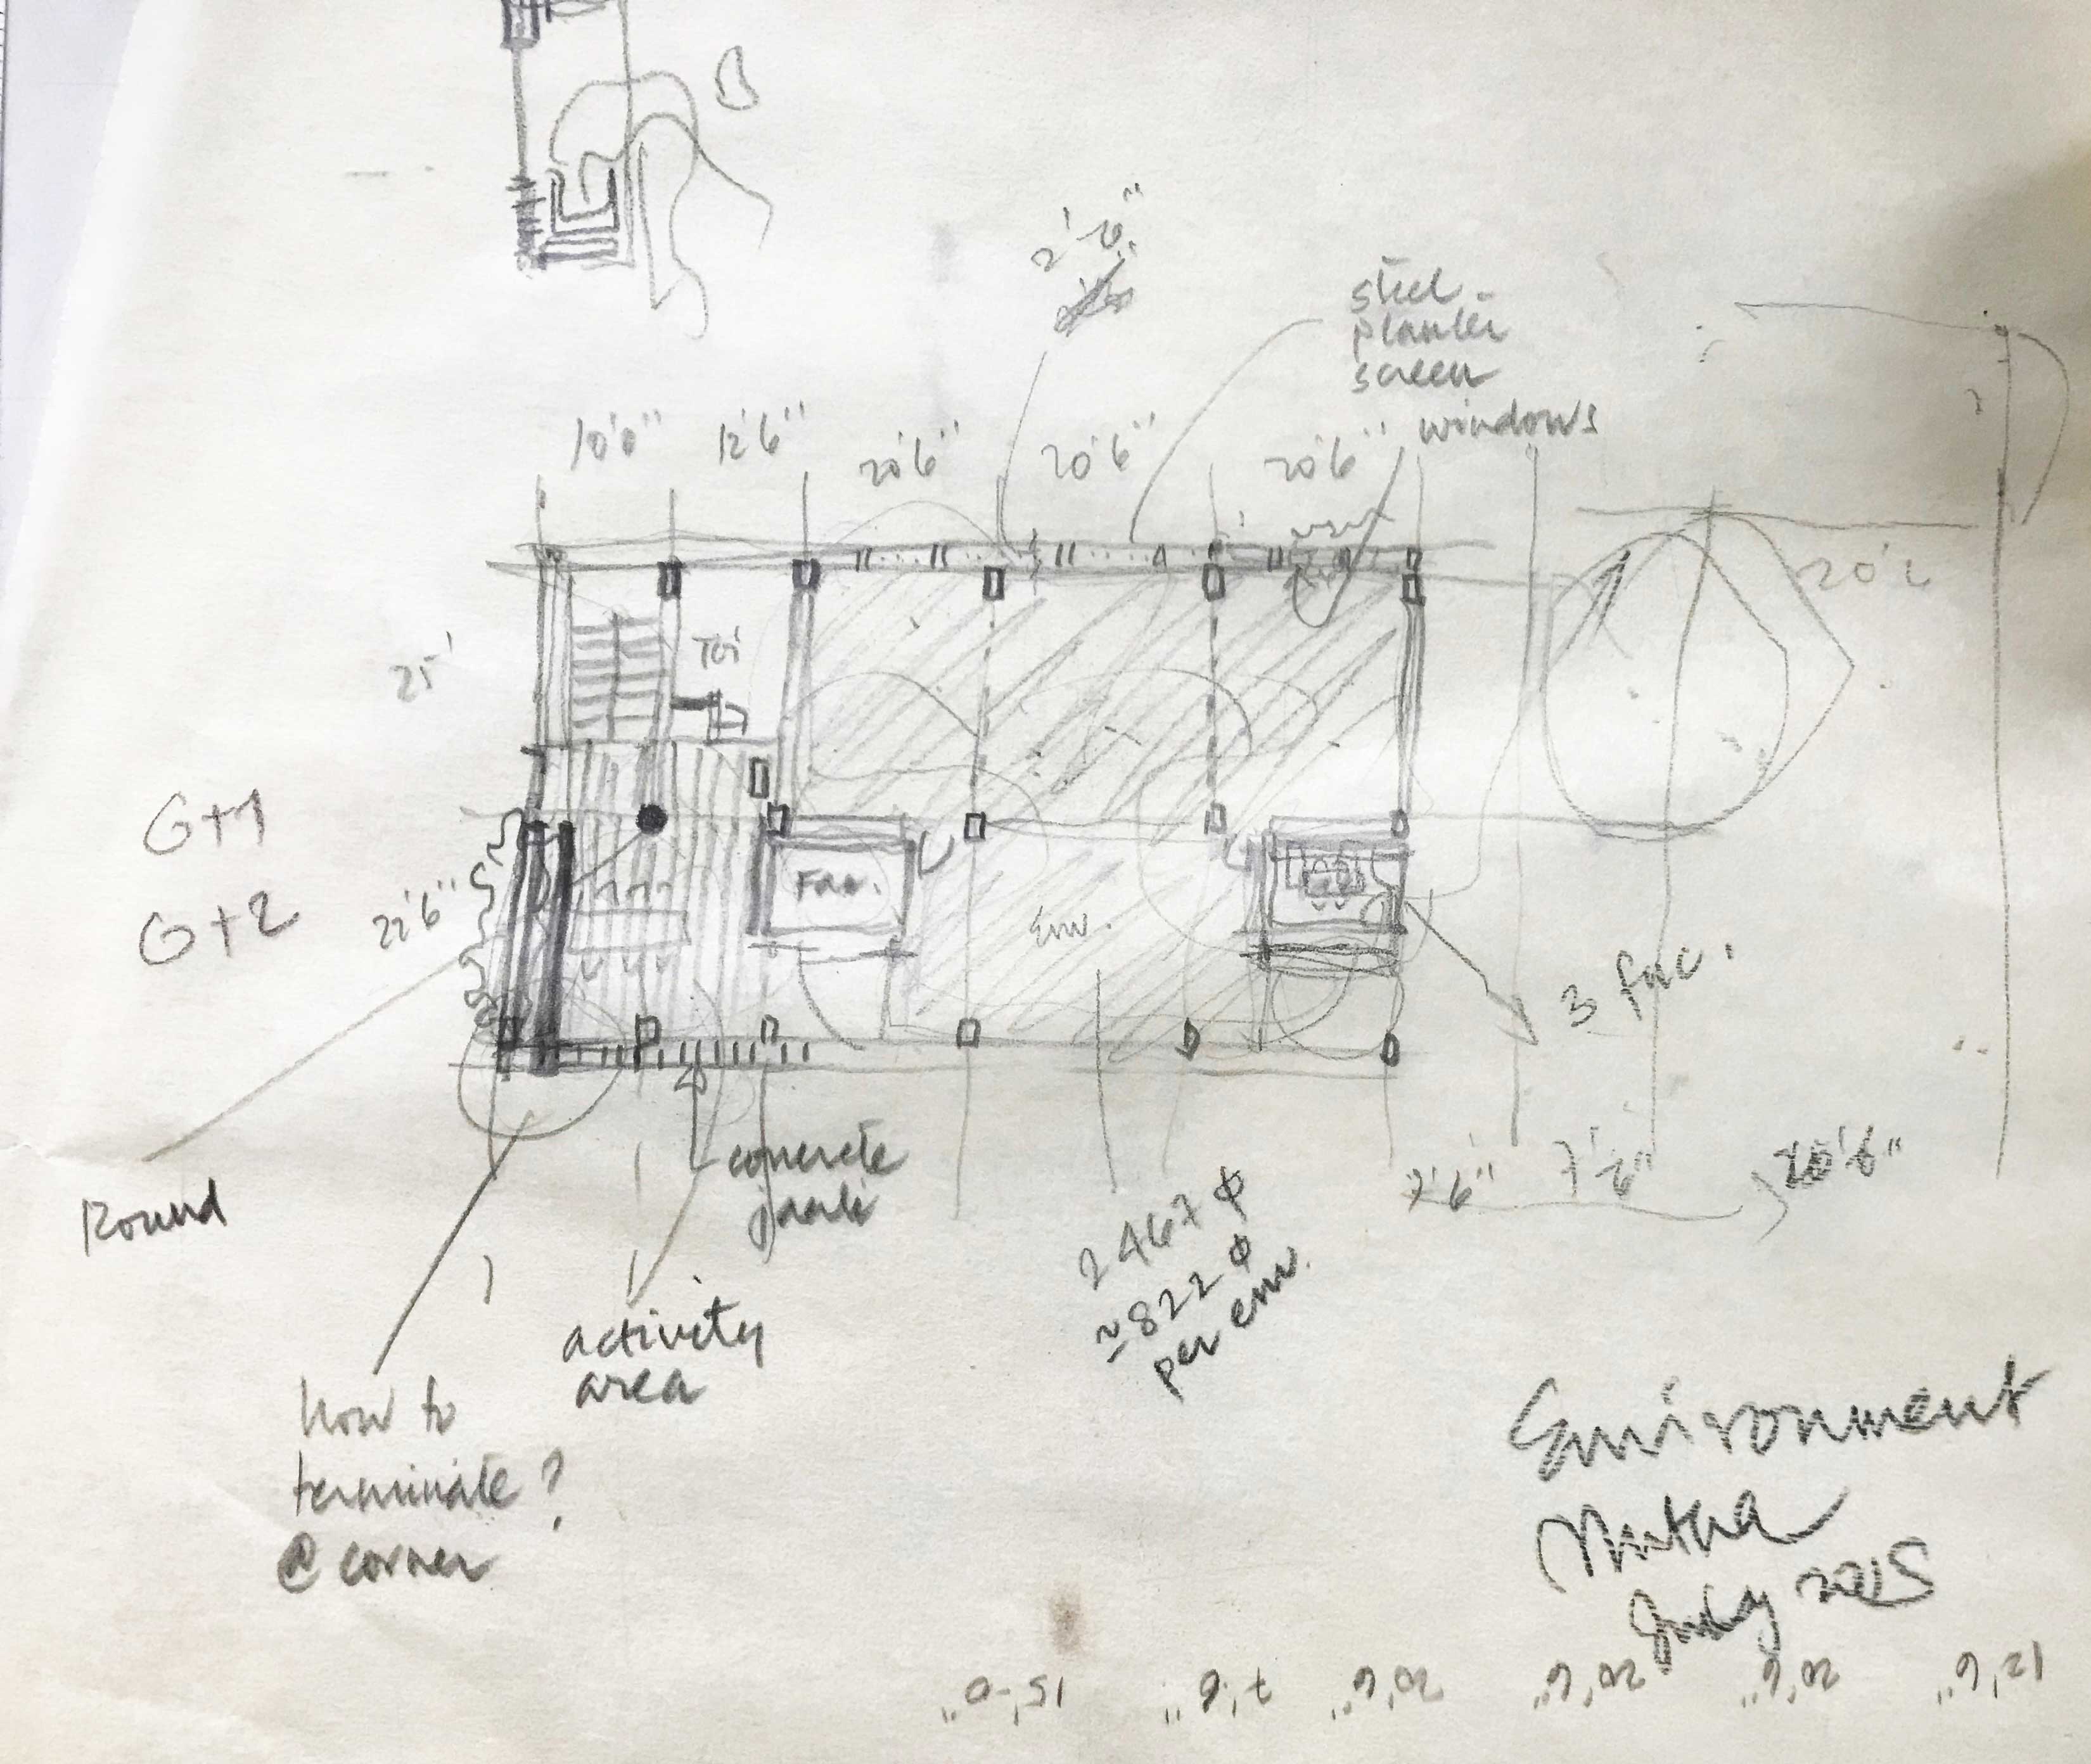 B
2'-6"
steel
planter
screen
windows
10'0" 12'6" 20'6" 20'6" 20'6"
Toi
25'
G+1
G+2
22'6"
Fac.
Env.
3 fac.
7'6" 7'6" 20'6"
Round
concrete
jaali
2467 ϕ
≃822 ϕ
per env.
activity
area
How to
terminate?
@ corner
Environment
Mutha
July 2015
12'6" 20'6" 20'6" 20'6" 7'6" 15'-0"